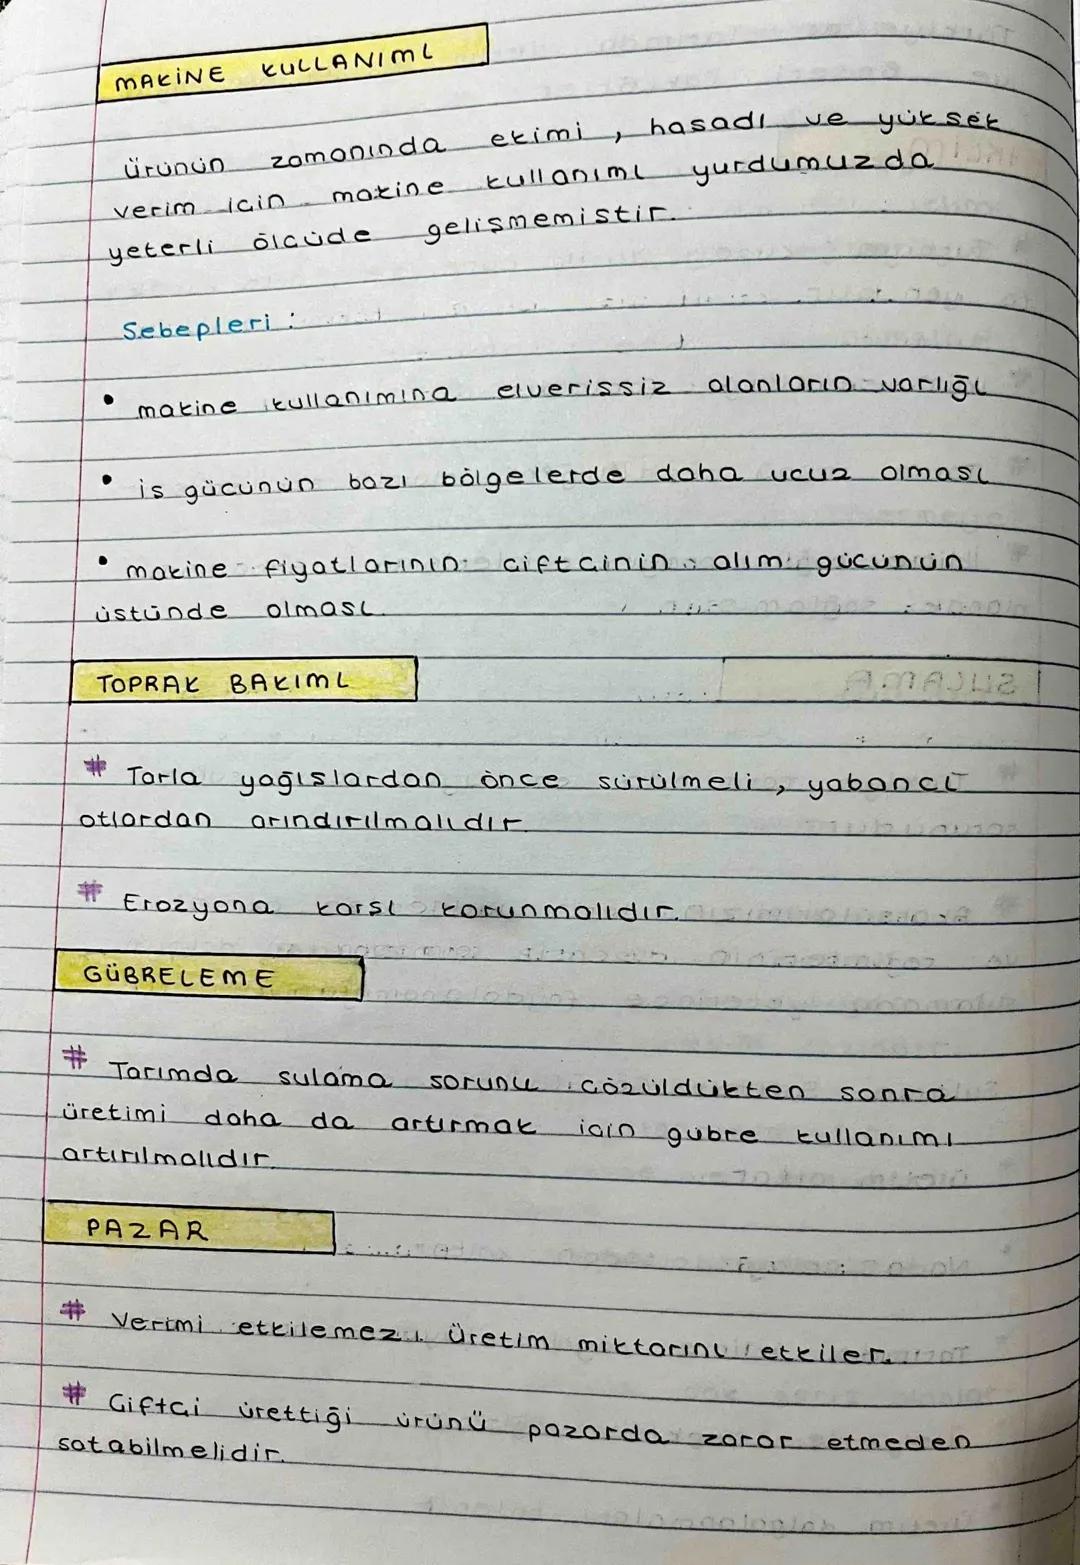 MAKİNE KULLANIMI
ürünün zamanında ekimi, hasadı ve yüksek
verim için makine kullanımı yurdumuzda
yeterli ölçüde gelişmemiştir.
Sebepleri :
• makine kullanımına elverişsiz alanların varlığı
• iş gücünün bazı bölgelerde daha ucuz olması
• makine fiyatlarının çiftçinin alım gücünün
üstünde olması.
TOPRAK BAKIMI
# Tarla yağışlardan önce sürülmeli, yabancı
otlardan arındırılmalıdır.
# Erozyona karşı korunmalıdır.
GÜBRELEME
# Tarımda sulama sorunu çözüldükten sonra
üretimi daha da artırmak için gübre kullanımı
artırılmalıdır.
PAZAR
# Verimi etkilemez, üretim miktarını etkiler.
# Çiftçi ürettiği ürünü pazarda zarar etmeden
satabilmelidir.